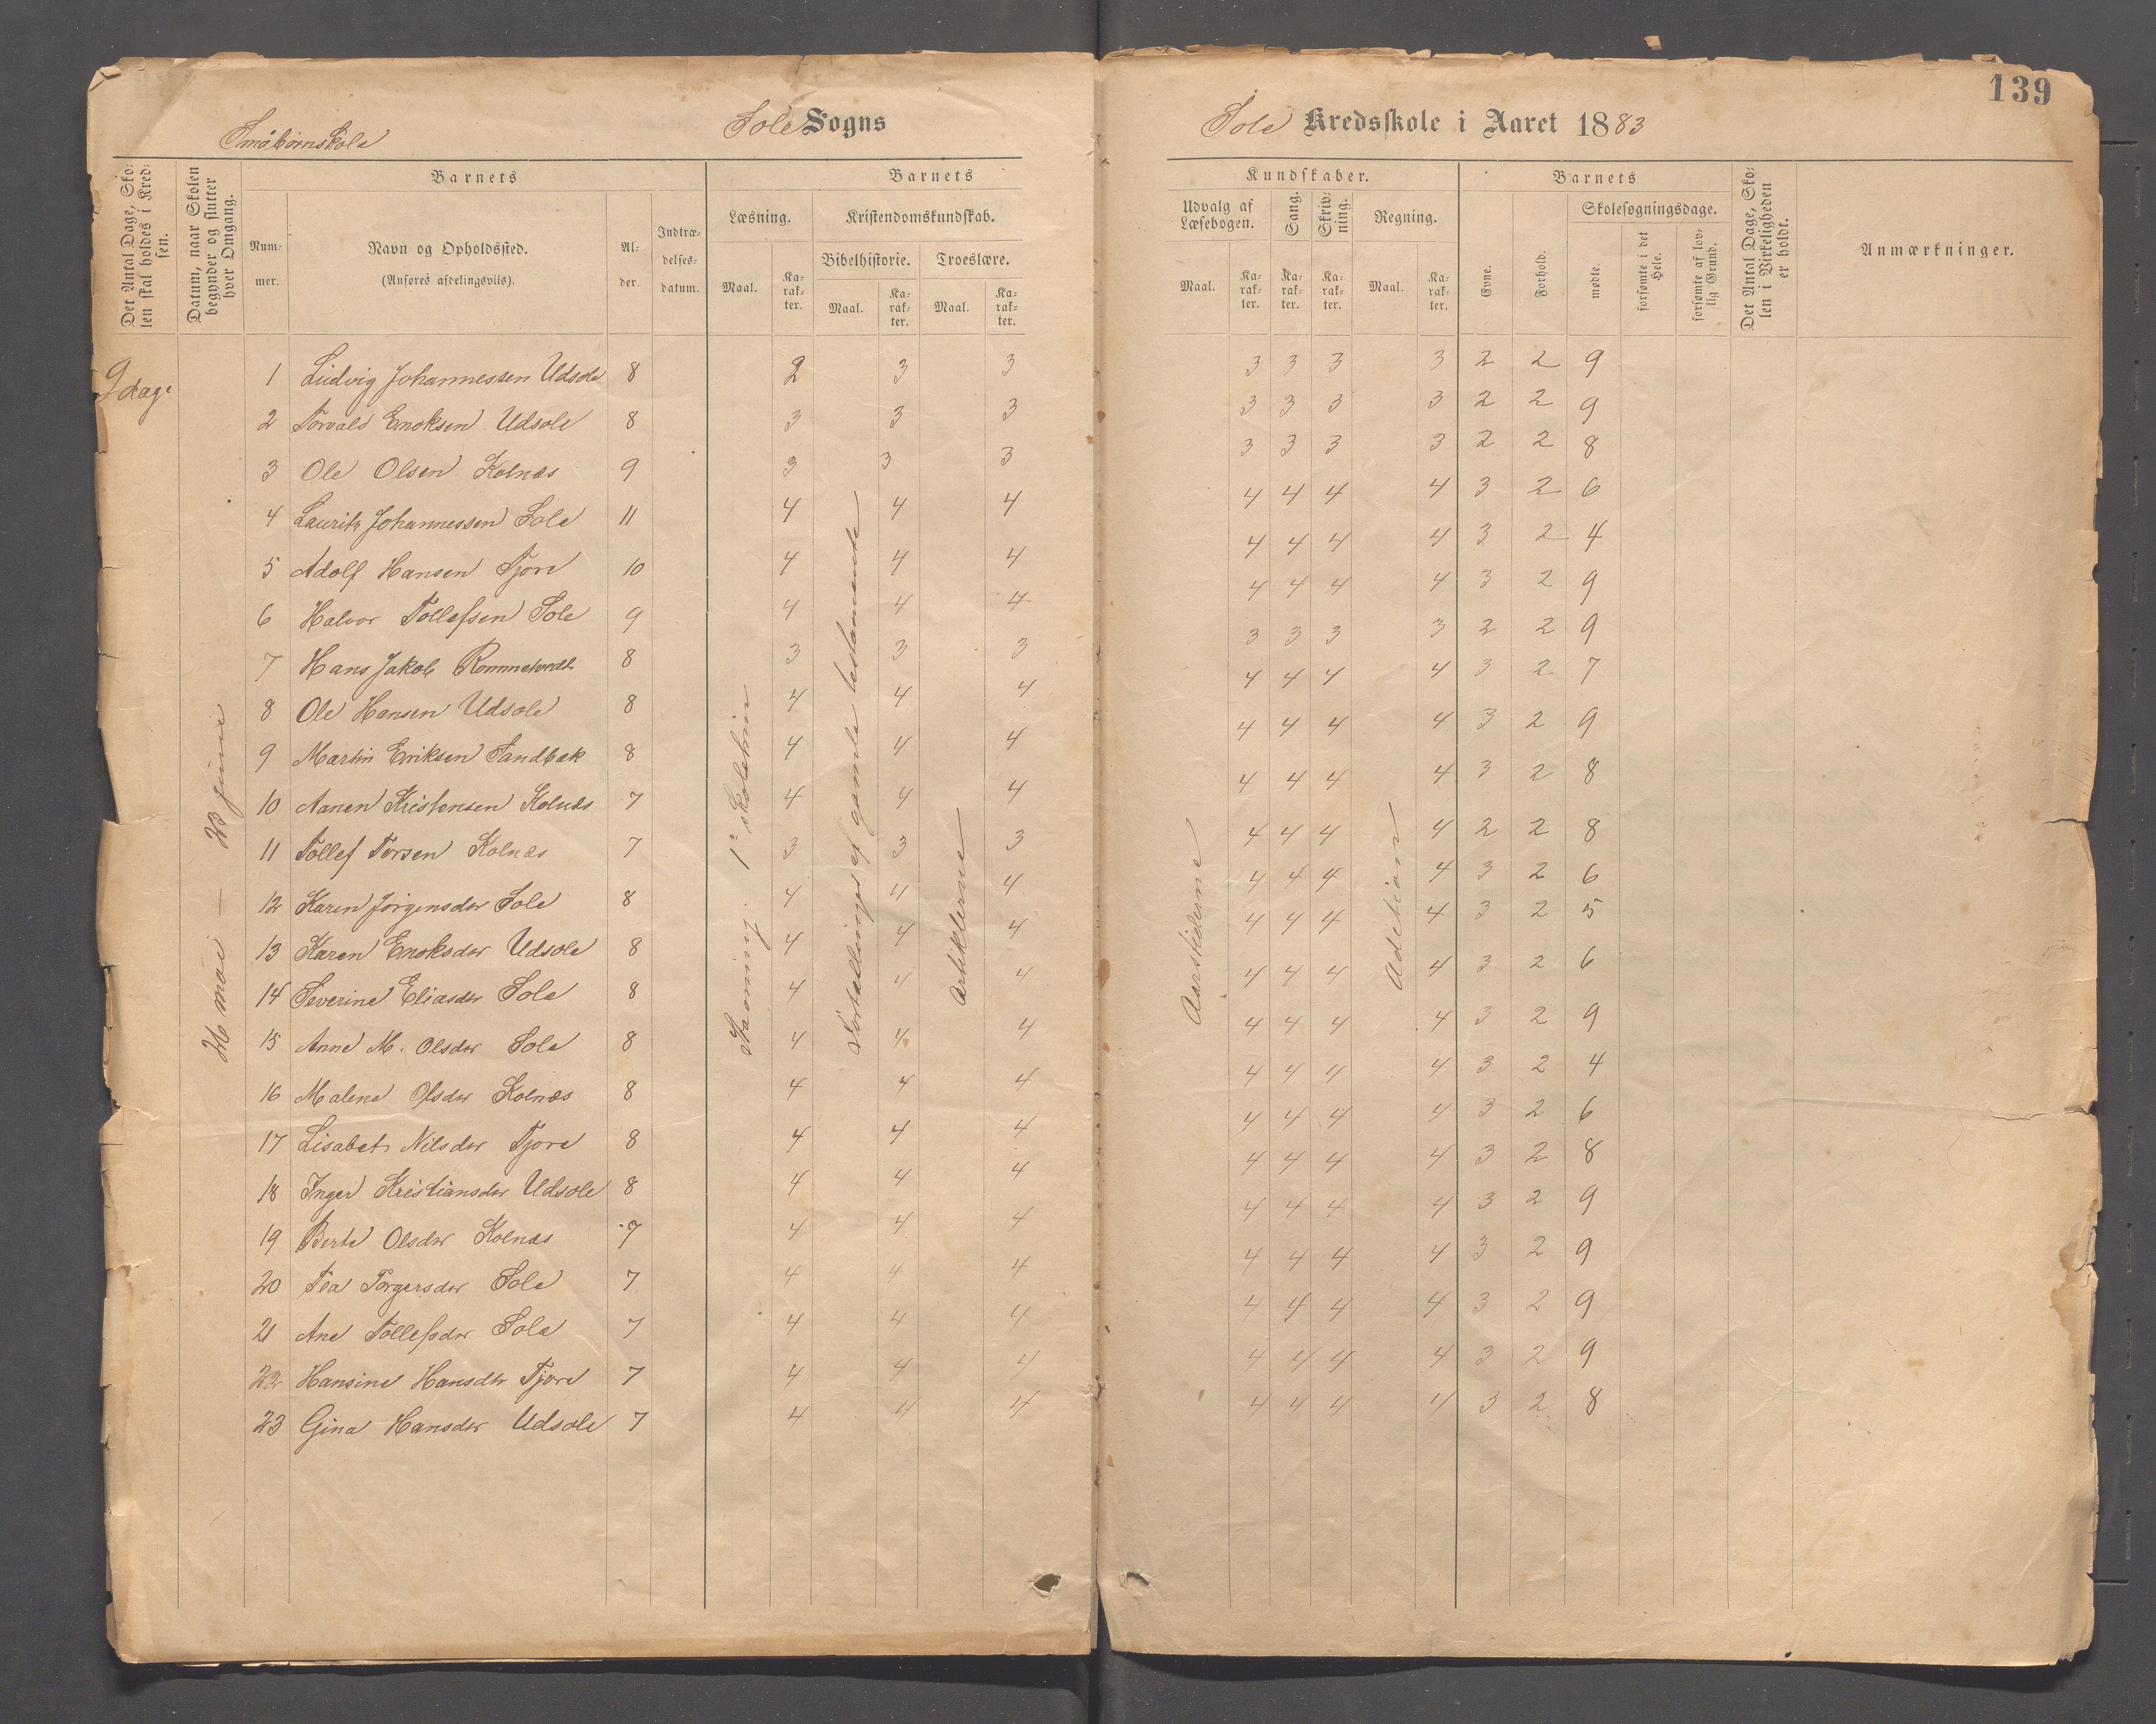 139
Småbørnskole
Sole Sogns
Sole Kredsskole i Aaret 1883
Det Antal Dage, Skolen skal holdes i Kredsen.
Datum, naar Skolen begynder og slutter hver Omgang.
Barnets
Nummer.
Navn og Opholdssted.
(Anføres afdelingsviis).
Alder.
Indtrædelsesdatum.
Barnets
Læsning.
Maal.
Karakter.
Kristendomskundskab.
Bibelhistorie.
Maal.
Karakter.
Troeslære.
Maal.
Karakter.
Kundskaber.
Udvalg af Læsebogen.
Maal.
Karakter.
Sang.
Karakter.
Skrivning.
Karakter.
Regning.
Maal.
Karakter.
Barnets
Evne.
Forhold.
Skolesøgningsdage.
mødte.
forsømte i det Hele.
forsømte af lovlig Grund.
Det Antal Dage, Skolen i Virkeligheden er holdt.
Anmærkninger.
9 dage
mai — 23 juni
Stavning. 1ste skoletrin
Fortællinger af gamle testamente
Artiklerne
Aarstiderne
Adetion
1 Ludvig Johannessen Udsole 8 2 3 3 3 3 3 3 2 2 9
2 Torvald Enoksen Udsole 8 3 3 3 3 3 3 3 2 2 9
3 Ole Olsen Kolnæs 9 3 3 3 3 3 3 3 2 2 8
4 Lauritz Johannessen Sole 11 4 4 4 4 4 4 4 3 2 6
5 Adolf Hansen Tjore 10 4 4 4 4 4 4 4 3 2 4
6 Halvor Tollefsen Sole 9 4 4 4 4 4 4 4 3 2 9
7 Hans Jakob 8 3 3 3 3 3 3 3 2 2 9
8 Ole Hansen Udsole 8 4 4 4 4 4 4 4 3 2 7
9 Martin Eriksen Sandbæk 8 4 4 4 4 4 4 4 3 2 9
10 Aanen Kristensen Kolnæs 7 4 4 4 4 4 4 4 3 2 8
11 Tollef Torsen Kolnæs 7 3 3 3 4 4 4 4 2 2 8
12 Karen Jørgensdtr Sole 8 4 4 4 4 4 4 4 3 2 6
13 Karen Enoksdtr Udsole 8 4 4 4 4 4 4 4 3 2 5
14 Severine Eliasdtr Sole 8 4 4 4 4 4 4 4 3 2 6
15 Anne M. Olsdtr Sole 8 4 4 4 4 4 4 4 3 2 9
16 Malene Olsdtr Kolnæs 8 4 4 4 4 4 4 4 3 2 4
17 Lisabet Nilsdtr Tjore 8 4 4 4 4 4 4 4 3 2 6
18 Inger Kristiansdtr Udsole 8 4 4 4 4 4 4 4 3 2 8
19 Berte Olsdtr Kolnæs 7 4 4 4 4 4 4 4 3 2 9
20 Tea Torgersdtr Sole 7 4 4 4 4 4 4 4 3 2 9
21 Ane Tollefsdtr Sole 7 4 4 4 4 4 4 4 3 2 9
22 Hansine Hansdtr Tjore 7 4 4 4 4 4 4 4 3 2 9
23 Gina Hansdtr Udsole 7 4 4 4 4 4 4 4 3 2 8